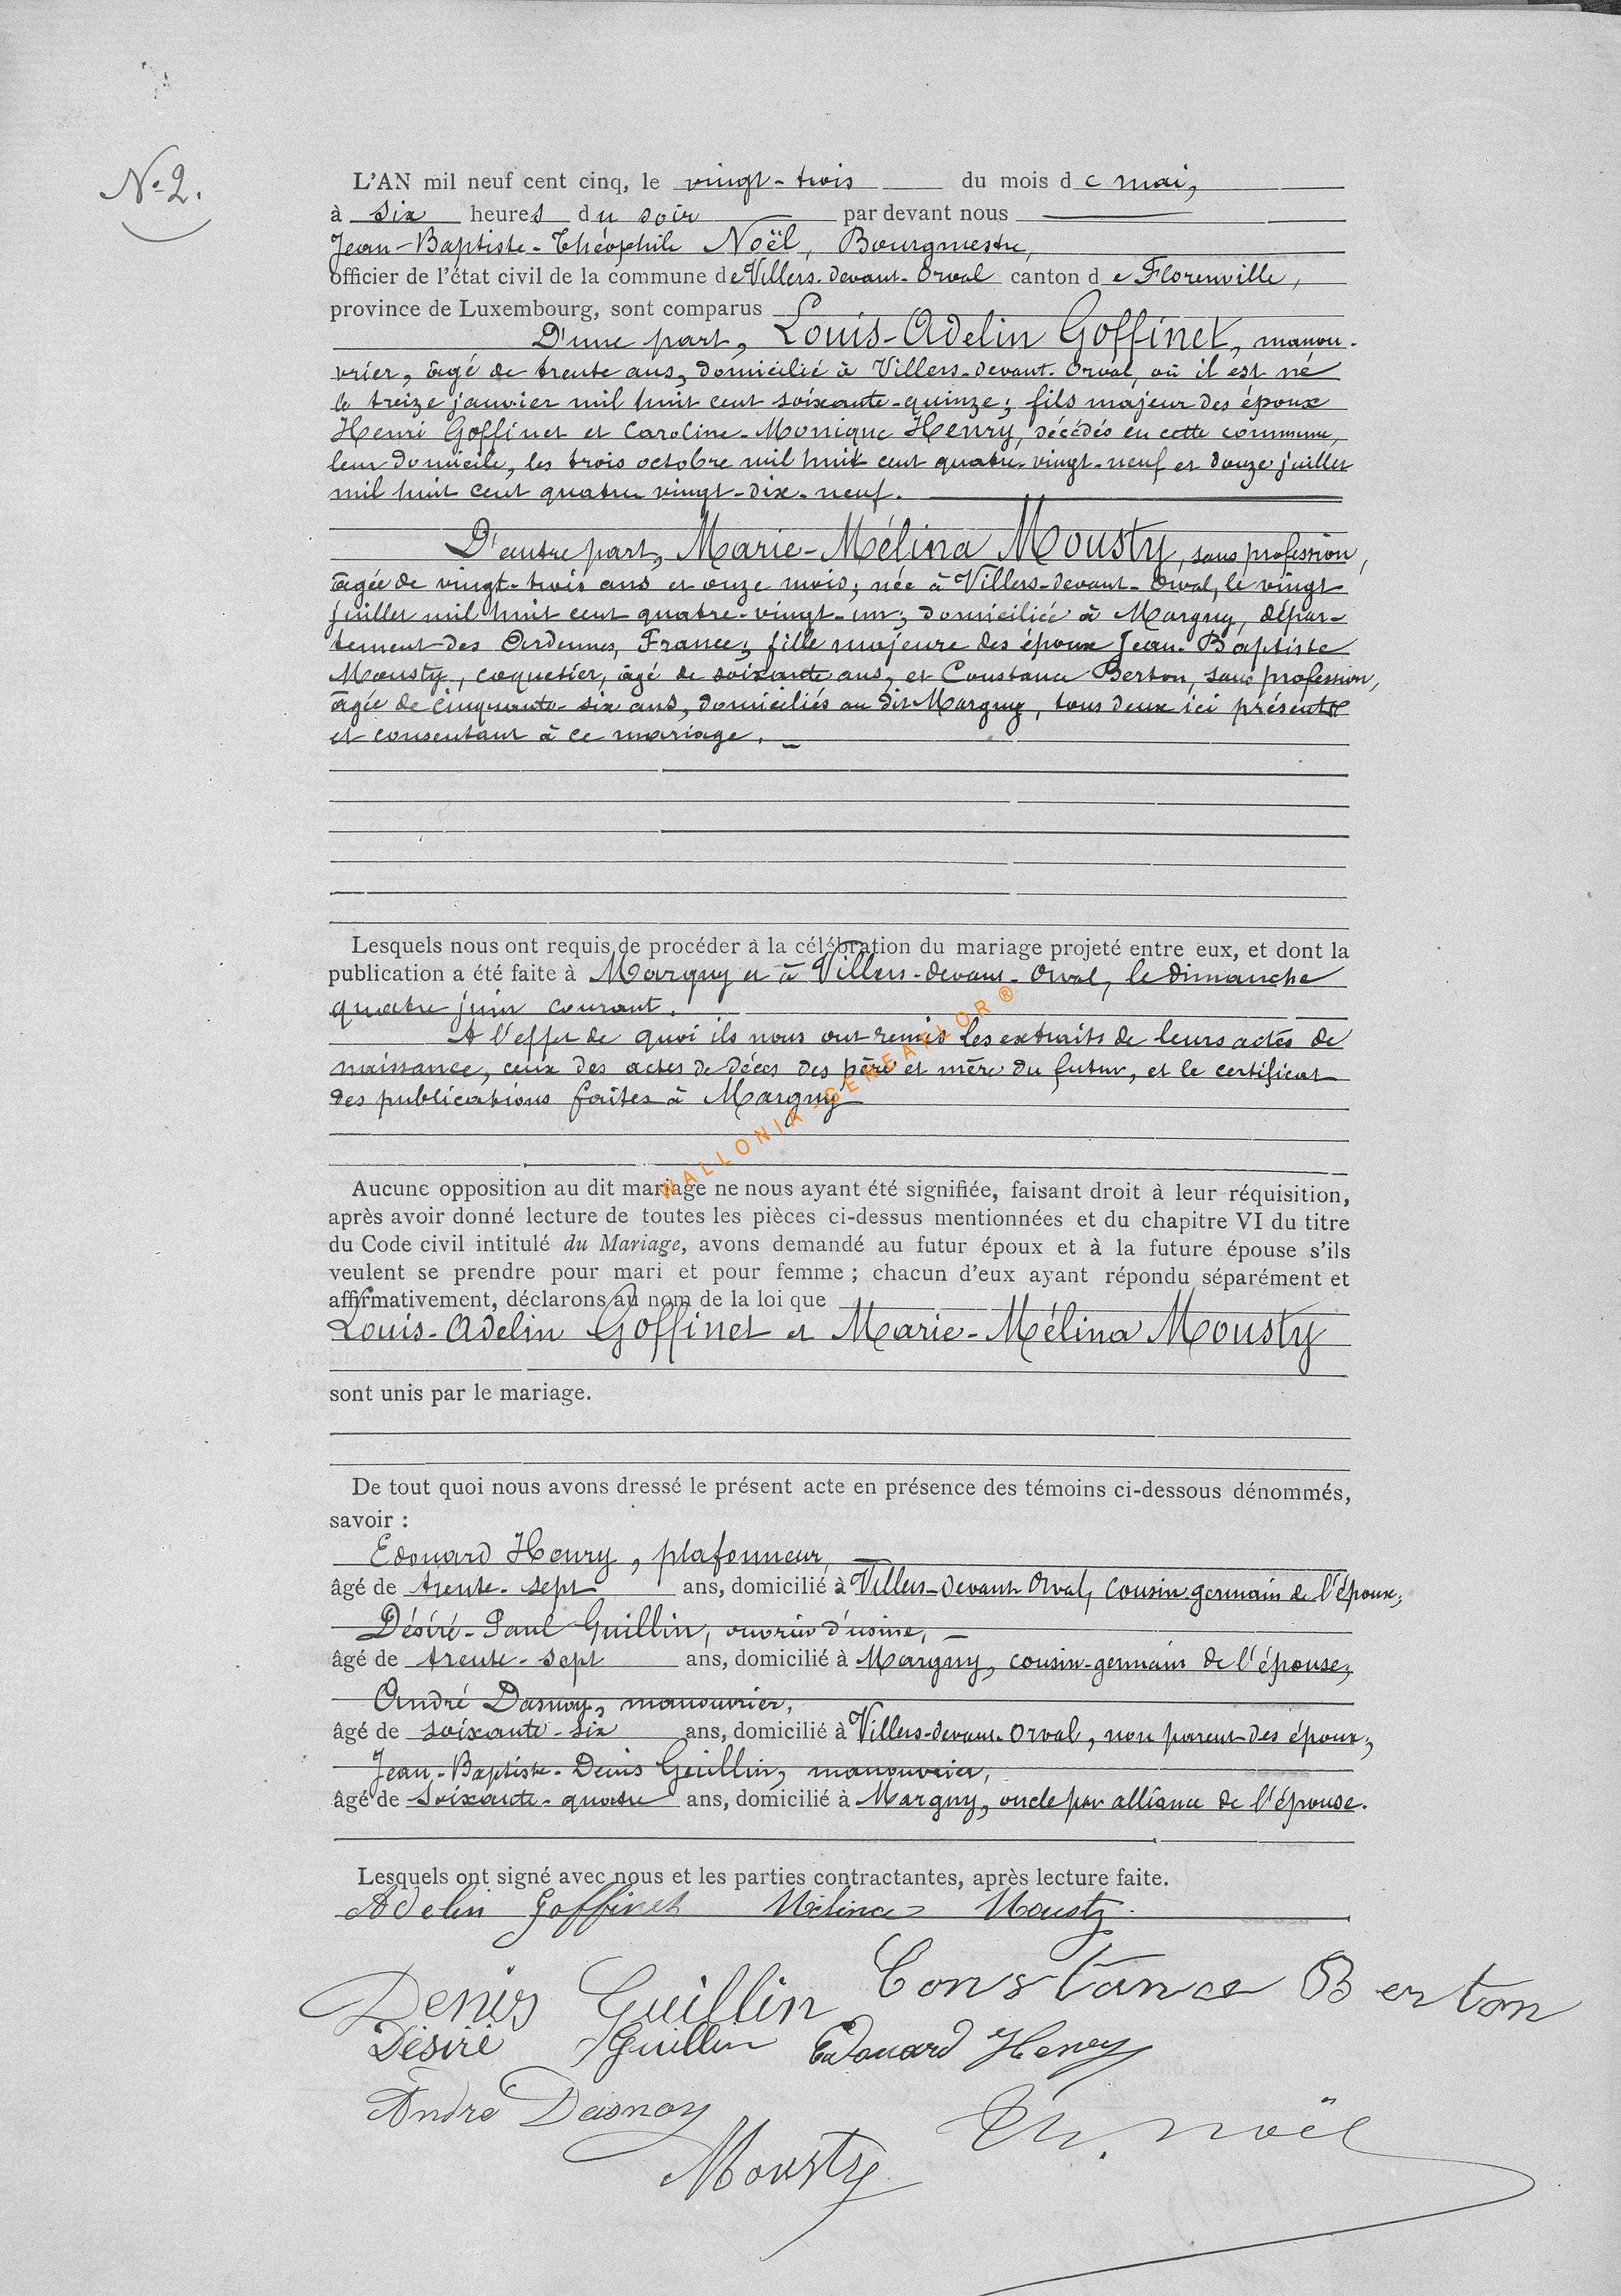 N° 2.
L'AN mil neuf cent cinq, le vingt-trois du mois d e mai,
à six heures du soir par devant nous
Jean-Baptiste-Théophile Noël, Bourgmestre,
officier de l'état civil de la commune de Villers-devant-Orval canton d e Florenville,
province de Luxembourg, sont comparus
D'une part, Louis-Adelin Goffinet, manou-
vrier, âgé de trente ans, domicilié à Villers-devant-Orval, où il est né
le treize janvier mil huit cent soixante-quinze; fils majeur des époux
Henri Goffinet et Caroline-Monique Henry, décédés en cette commune,
leur domicile, les trois octobre mil huit cent quatre-vingt-neuf et douze juillet
mil huit cent quatre vingt-dix-neuf.
D'autre part, Marie-Mélina Mousty, sans profession,
âgée de vingt-trois ans et onze mois; née à Villers-devant-Orval, le vingt
juillet mil huit cent quatre-vingt-un; domiciliée à Margny, dépar-
tement des Ardennes, France; fille majeure des époux Jean-Baptiste
Mousty, coquetier, âgé de soixante ans, et Constance Berton, sans profession,
âgée de cinquante-six ans, domiciliés au dit Margny, tous deux ici présents
et consentant à ce mariage.
Lesquels nous ont requis de procéder à la célébration du mariage projeté entre eux, et dont la
publication a été faite à Margny et à Villers-devant-Orval, le dimanche
quatre juin courant.
A l'effet de quoi ils nous ont remis les extraits de leurs actes de
naissance, ceux des actes de décès des père et mère du futur, et le certificat
des publications faites à Margny
WALLONIA-GENEAFLOR ®
Aucune opposition au dit mariage ne nous ayant été signifiée, faisant droit à leur réquisition,
après avoir donné lecture de toutes les pièces ci-dessus mentionnées et du chapitre VI du titre
du Code civil intitulé du Mariage, avons demandé au futur époux et à la future épouse s'ils
veulent se prendre pour mari et pour femme ; chacun d'eux ayant répondu séparément et
affirmativement, déclarons au nom de la loi que
Louis-Adelin Goffinet et Marie-Mélina Mousty
sont unis par le mariage.
De tout quoi nous avons dressé le présent acte en présence des témoins ci-dessous dénommés,
savoir :
Edouard Henry, plafonneur,
âgé de trente-sept ans, domicilié à Villers-devant Orval, cousin germain de l'époux;
Désiré-Paul Guillin, ouvrier d'usine,
âgé de trente-sept ans, domicilié à Margny, cousin-germain de l'épouse;
André Dasnoy, manouvrier,
âgé de soixante-six ans, domicilié à Villers-devant-Orval, non parent des époux;
Jean-Baptiste-Denis Guillin, manouvrier,
âgé de soixante-quatre ans, domicilié à Margny, oncle par alliance de l'épouse.
Lesquels ont signé avec nous et les parties contractantes, après lecture faite.
Adelin Goffinet Mélina Mousty
Denis Guillin Constance Berton
Désiré Guillin Edouard Henry
André Dasnoy Th. Noël
Mousty